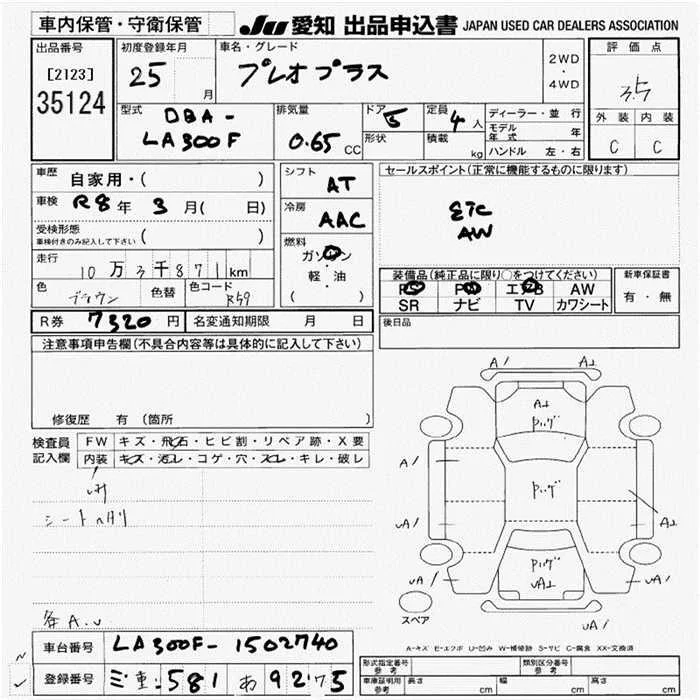 車内保管・守衛保管
JU 愛知 出品申込書 JAPAN USED CAR DEALERS ASSOCIATION
出品番号
[2123]
35124
初度登録年月
25
月
車名・グレード
プレオプラス
2WD
・
4WD
評価点
3.5
外装 内装
C C
型式
DBA-
LA300F
排気量
0.65 CC
ドア
5
形状
定員
4人
積載
kg
ディーラー・並行
モデル年式 年
ハンドル 左・右
車歴
自家用・( )
車検
R8年 3月( 日)
受検形態
車検付きのみ記入して下さい ( )
走行
10万3千871km
色
ブラウン
色替
色コード
R59
シフト
AT
冷房
AAC
燃料
ガソリン
・
軽・油
( )
セールスポイント(正常に機能するものに限ります)
ETC
AW
装備品(純正品に限り○をつけてください)
PS PW エアB AW
SR ナビ TV カワシート
新車保証書
有・無
R券 7320円
名変通知期限 月 日
後日品
注意事項申告欄(不具合内容等は具体的に記入して下さい)
修復歴 有(箇所 )
検査員
記入欄
FW キズ・飛石・ヒビ割・リペア跡・X要
内装 キズ・汚レ・コゲ・穴・スレ・キレ・破レ
シートヘタリ
各A.U
A1 A1
A1
A1
uA1
A1
uA1
uA1
uA1
uA1
スペア
A-キズ E-エクボ U-凹み W-補修跡 S-サビ C-腐食 XX-交換済
車台番号 LA300F-1502740
登録番号 三重 581 わ 9275
型式指定番号
参考
類別区分番号
参考
車庫証明用
参考
長さ cm
幅 cm
高さ cm